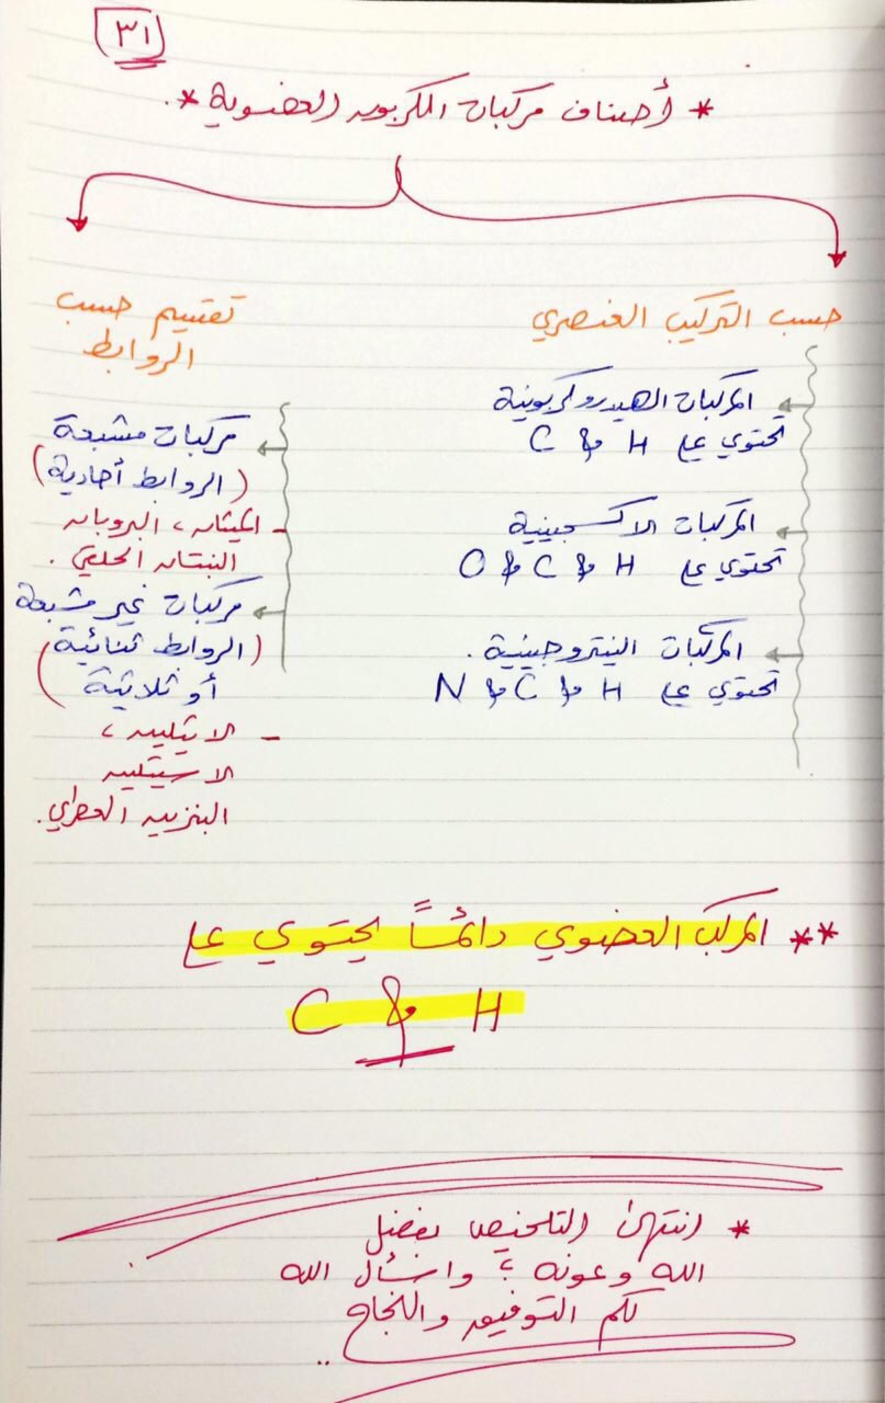 ٣١
* أصناف مركبات الكربون العضوية *
حسب التركيب العنصري
المركبات الهيدروكربونية
تحتوي على C & H
المركبات الاكسجينية
تحتوي على O & C & H
المركبات النيتروجينية.
تحتوي على N & C & H
تقسيم حسب
الروابط
مركبات مشبعة
(الروابط أحادية)
- الميثان، البروبان
البنتان الحلقي.
مركبات غير مشبعة
(الروابط ثنائية
أو ثلاثية)
- الايثيلين،
الاسيتيلين
البنزين العطري.
** المركب العضوي دائماً يحتوي على
C & H
* انتهى التلخيص بفضل
الله وعونه؛ واسأل الله
لكم التوفيق والنجاح
..